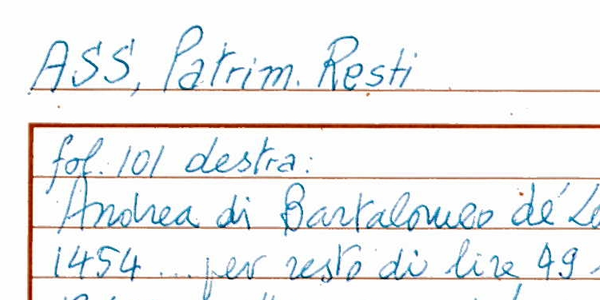 ASS, Patrim. Resti
fol. 101 destra:
Andrea di Bartalomeo de'
1454 ... per resto di lire 49